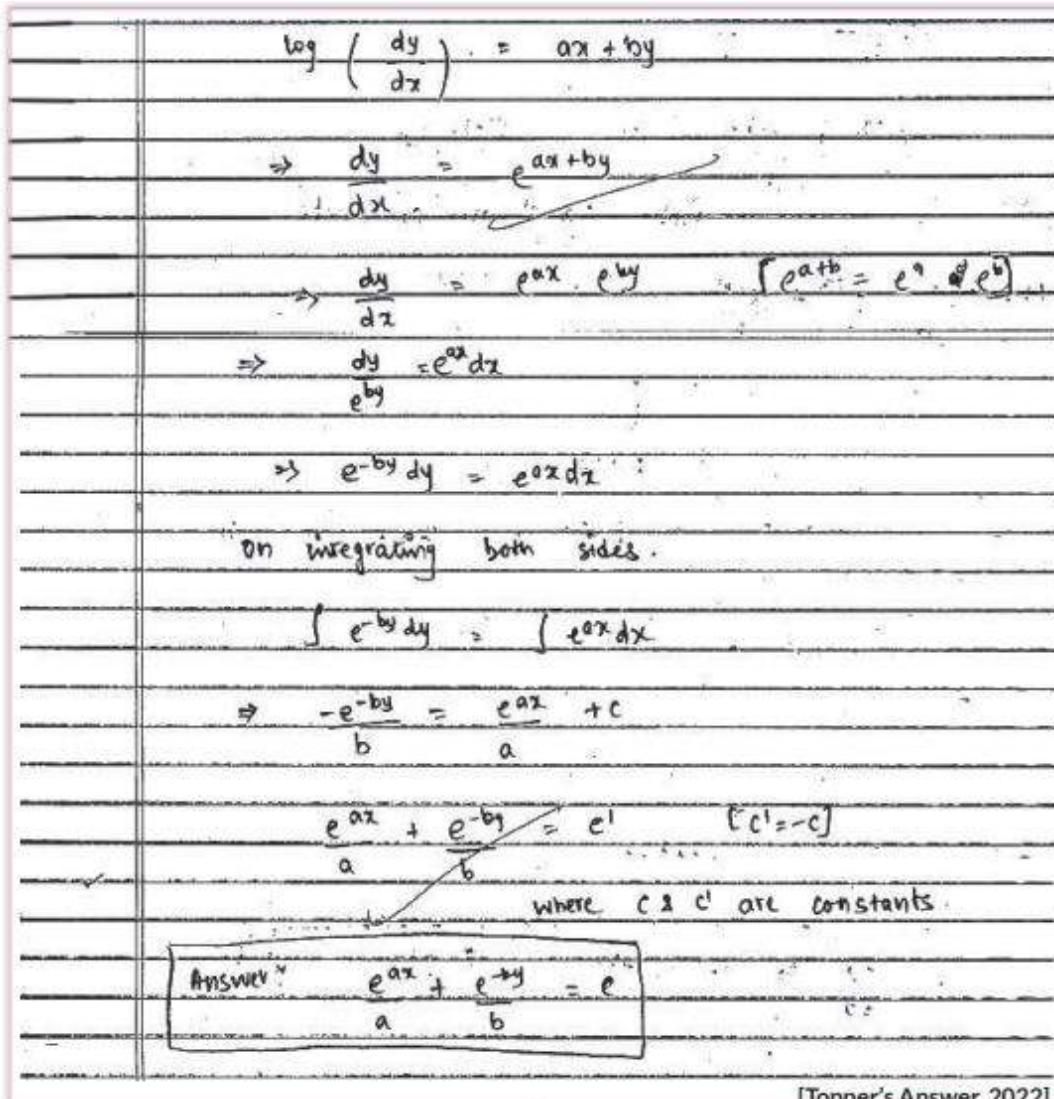 log ( dy/dx ) = ax + by
⇒ dy/dx = e^{ax+by}
⇒ dy/dx = e^{ax} . e^{by} [e^{a+b} = e^a . e^b]
⇒ dy/e^{by} = e^{ax} dx
⇒ e^{-by} dy = e^{ax} dx
on integrating both sides.
∫ e^{-by} dy = ∫ e^{ax} dx
⇒ -e^{-by}/b = e^{ax}/a + c
e^{ax}/a + e^{-by}/b = c' [c' = -c]
where c & c' are constants.
Answer: e^{ax}/a + e^{-by}/b = c
[Topper's Answer, 2022]